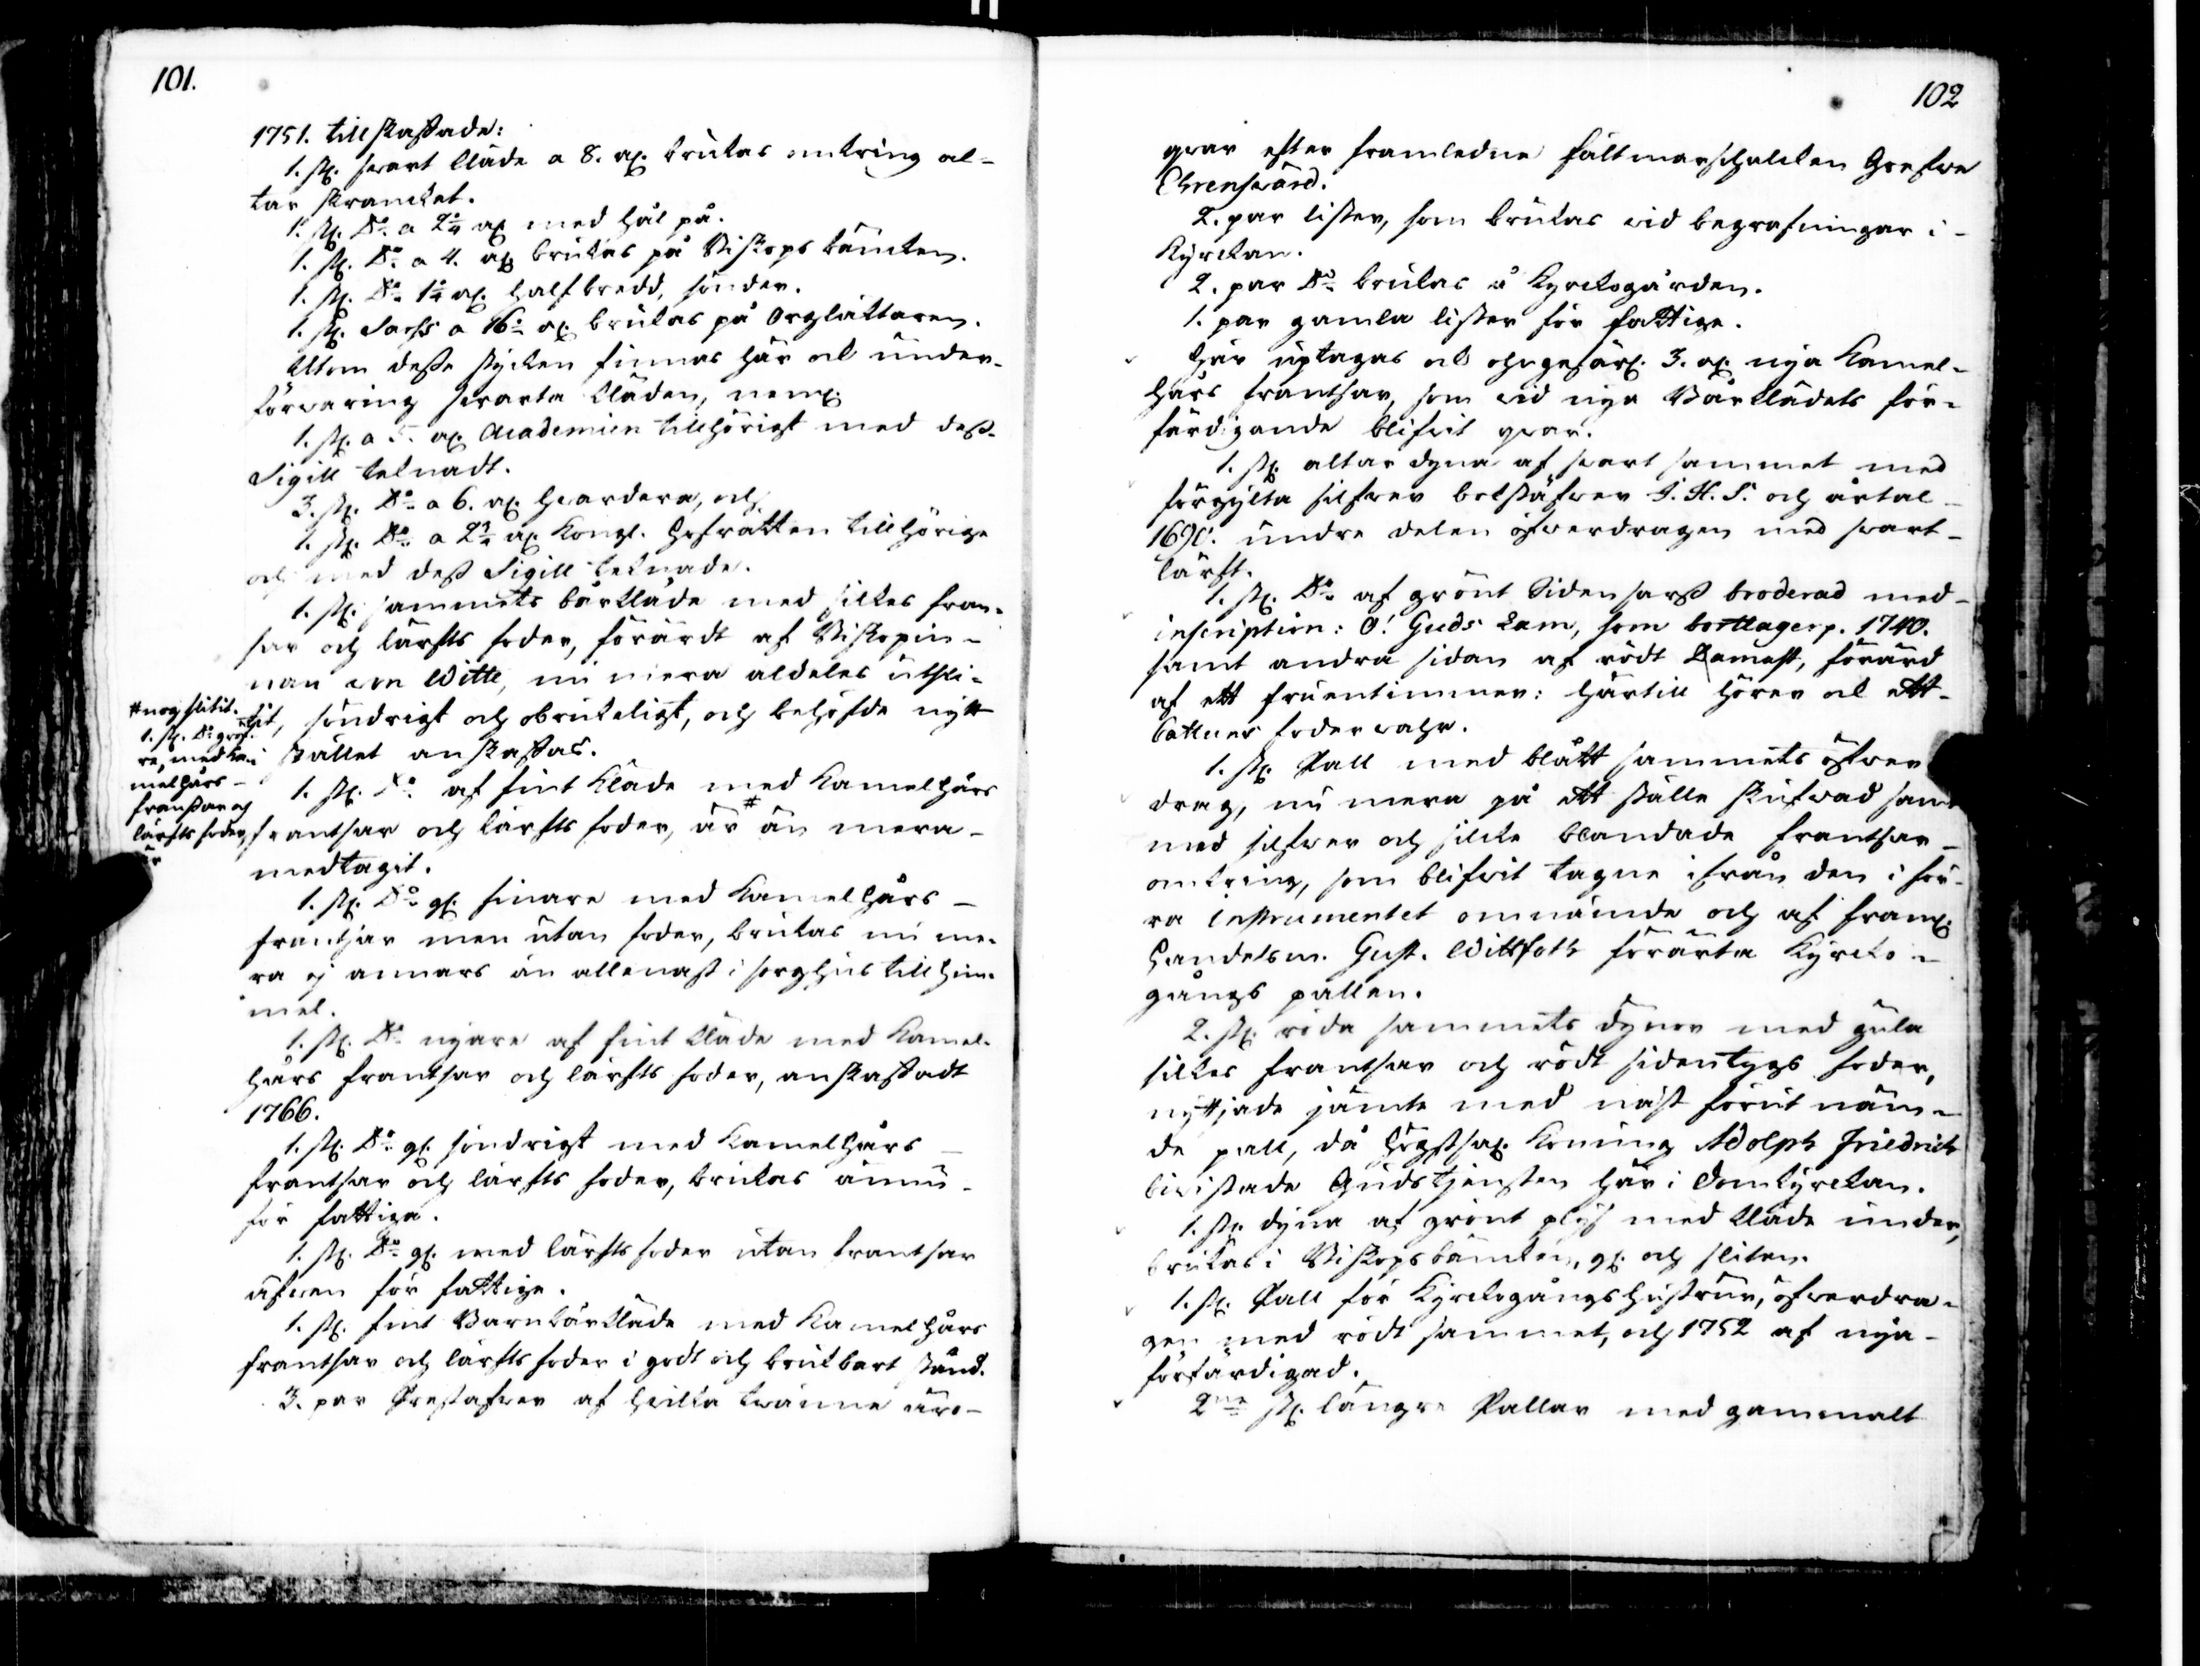 101.
1751. tillskaffade:
1. st. swart kläde a 8. al. brukas omkring al-
tar skrancket.
1. st. Do a 2 1/4 al. med hål på.
1. st. Do a 4. al. brukas på Biskops bäncken.
1. st. Do 1 1/4 al. half bredd, sönder.
1. st. Sarss a 16 al. brukas på Orglächtaren.
Utom desse stycken finnas här ock under
förwaring swarta kläden, neml.
1. st. a 5. al. Academien tillhörigt med dess
Sigill teknadt.
3. st. Do a 6. al. hwardera, och
1. st. Do a 2 1/2 al. Kongl. Hofrätten tillhörige
och med dess Sigill teknade.
1. st. sammets bårkläde med silkes fran-
sar och lärfts foder, förärdt af Biskopin-
nan von Witte, nu mera aldeles utsli-
tit, söndrigt och obrukeligt, och behöfde nytt
stället anskaffas.
1. st. Do af fint Kläde med Kamelhårs
frantsar och lärfts foder, är # än mera
medtagit.
# nog slitit.
1. st. Do gröf-
re, med Ka-
melhårs
franssar och
lärfts foder,
är
1. st. Do gl. finare med Kamelhårs
frantsar men utan foder, brukas nu me-
ra ej annars än allenast i sorghus till him-
mel.
1. st. Do nyare af fint kläde med Kamel-
hårs frantsar och lärfts foder, anskaffadt
1766.
1. st. Do gl. söndrigt med Kamelhårs
frantsar och lärfts foder, brukas ännu
för fattiga.
1. st. Do gl. med lärfts foder utan frantsar
äfwen för fattige.
1. st. fint Barnbårkläde med Kamelhårs
frantsar och lärfts foder i godt och brukbart stånd.
3. par Prestafwer af hwilka twänne äro
102
qwar efter framledne Fältmarschalcken Grefwe
Ehrenswärd.
2. par lister, som brukas wid begrafningar i
Kyrckan.
2. par Do brukas å Kyrckogården.
1. par gamla lister för fattige.
Här uptagas ock ohngefärl. 3. al. nya Kamel-
hårs frantsar, som wid nya Bårklädets för-
färdigande blifwit qwar.
1. st. altar dyna af swart sammet med
förgylta silfwer bokstäfwer J. H. S. och årtal
1690. undre delen öfwerdragen med swart
lärft.
1. st. Do af grönt Siden sarss broderad med
inscription: O! Guds Lam, som borttager p. 1740.
samt andra sidan af rödt Damast, förärd
af ett fruentimmer: härtill hörer ock ett
Cattuns foderwahr.
1. st. Pall med blått sammets öfwer
drag, nu mera på ett ställe skufwad samt
med silfwer och silcke blandade frantsar
omkring, som blifwit tagne ifrån den i för-
ra Instrumentet omnämde och af framl.
Handelsm. Gust. Wittfoth förärta Kyrcko-
gångs pallen.
2. st. röda sammets dynor med gula
silkes frantsar och rödt sidentygs foder,
nyttjade jämte med näst förut näm-
de pall, då högstsal. Konung Adolph Friedrich
biwistade Gudstjensten här i Domkyrckan.
1. st. dyna af grönt plys med kläde under,
brukas i Biskopsbäncken, gl. och sliten.
1. st. Pall för Kyrckogångshustrur, öfwerdra-
gen med rödt sammet, och 1752 af nya
förfärdigad.
2ne st. längre Pallar med gammalt